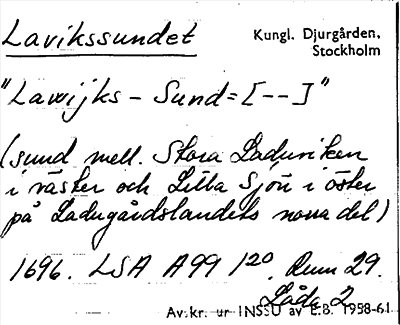 Lavikssundet
Kungl. Djurgården,
Stockholm
"Lawijks-Sund=[--]"
(sund mell. Stora Laduviken
i väster och Lilla Sjön i öster
på Ladugårdslandets norra del)
1696. LSA A99 1²⁰. Rum 29.
Låda 2
Av.kr. ur INSSU av E.B. 1958-61